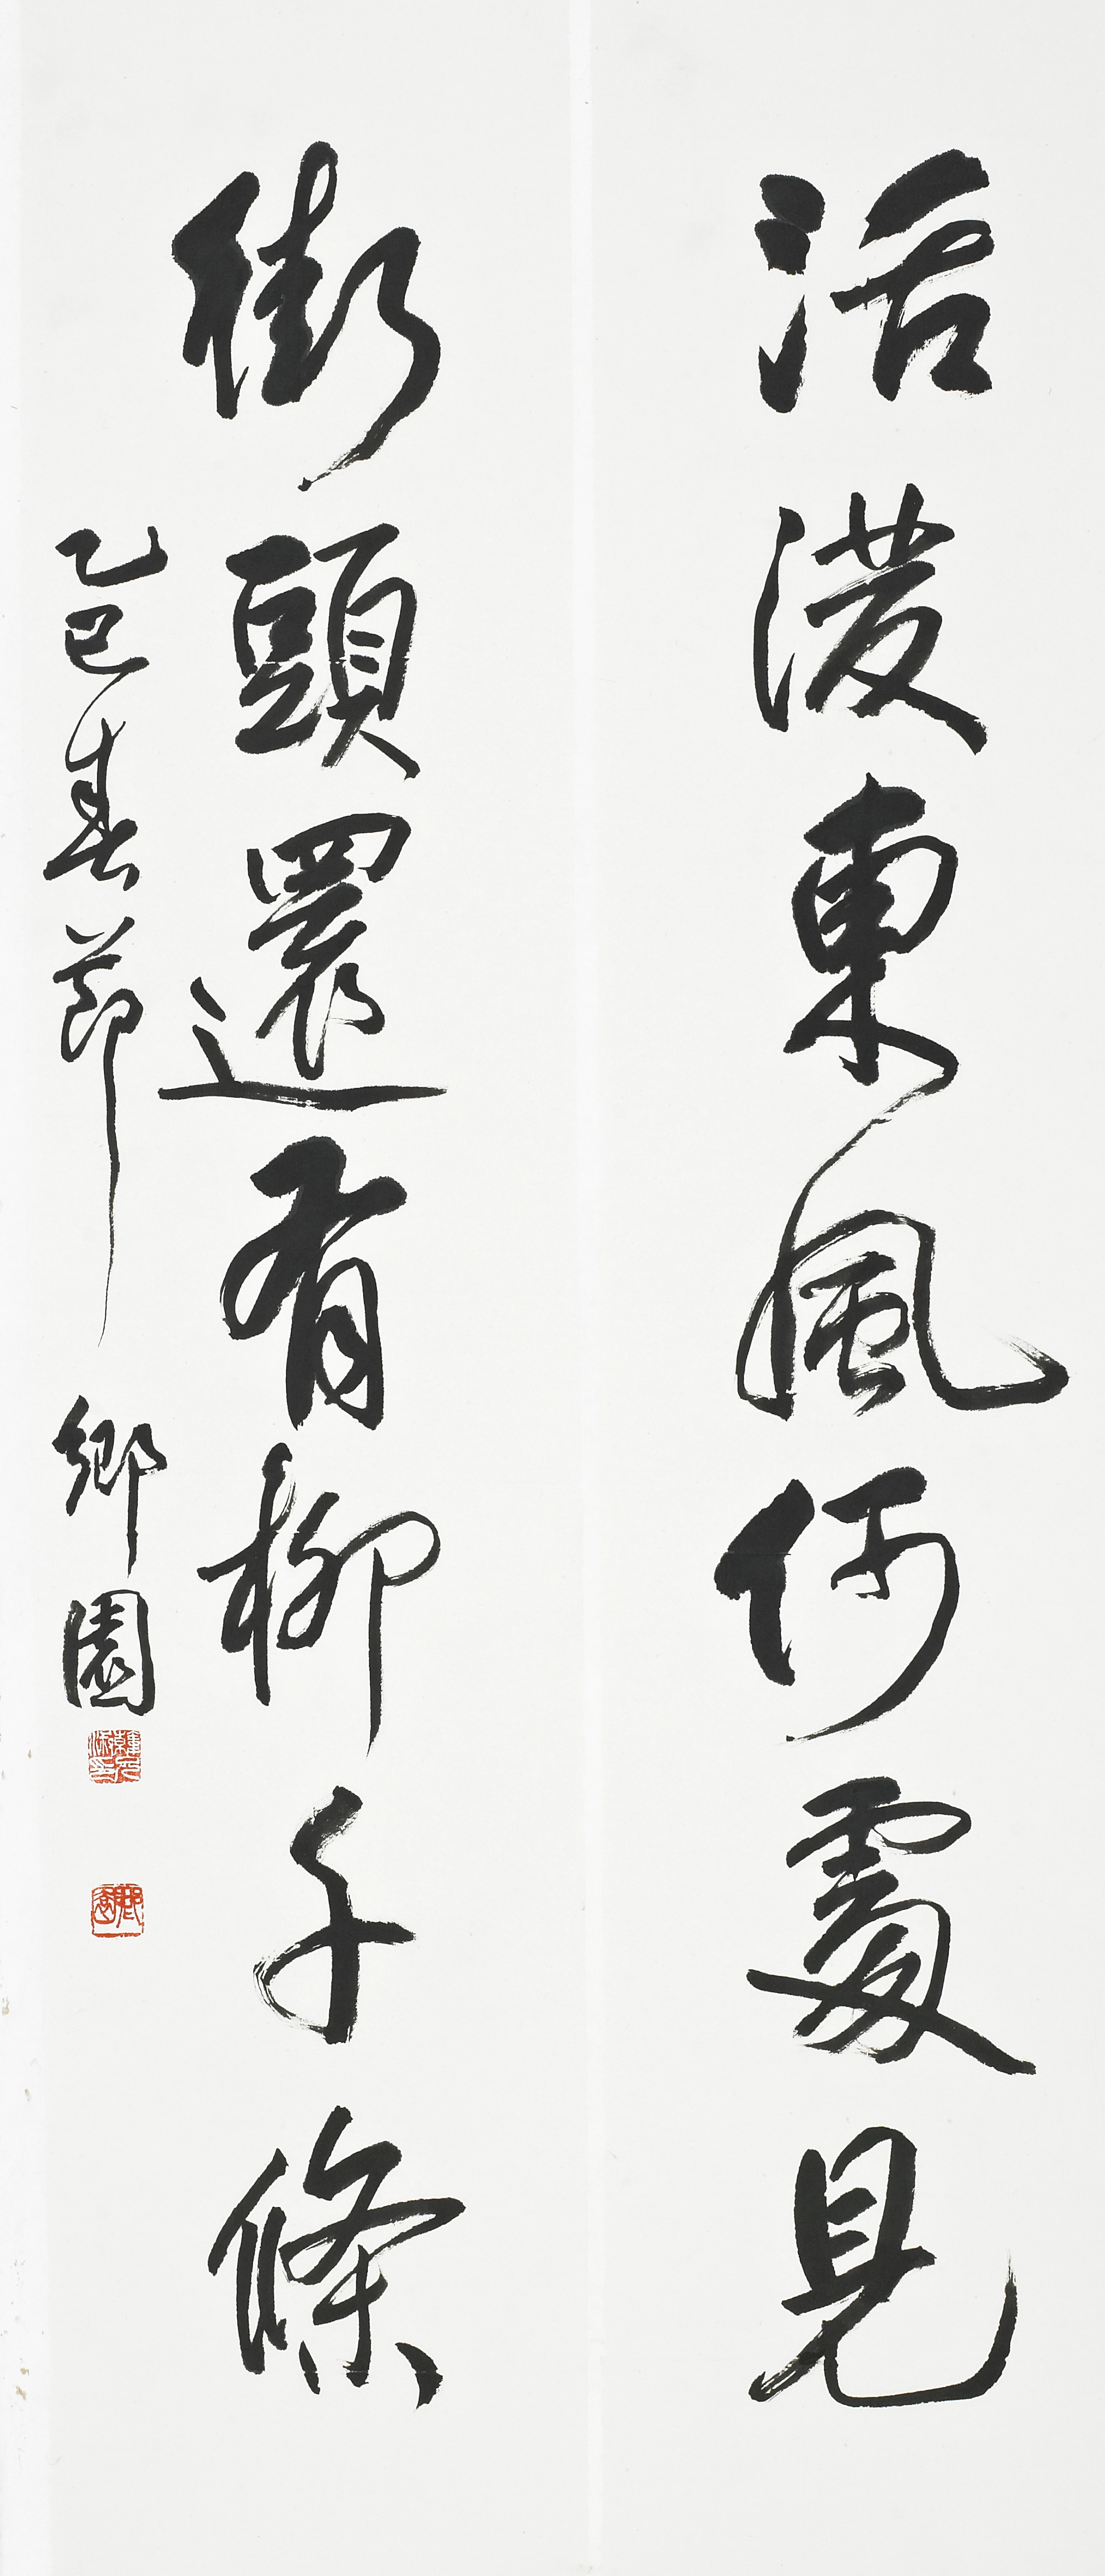 活潑東風何處見
街頭還有柳千條
乙巳春節
鄉園